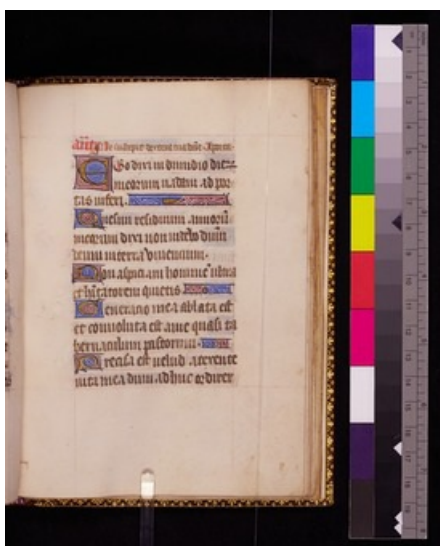 Ego dixi in dimidio die
meorum uadam ad por
tas inferi.
Quesiui residuum annorū
meorum dixi non uidebo dnm̄
deum in terra uiuentium.
Non aspiciam hominē ultra
et hītatorem quietis
Generatio mea ablata est
et conuoluta est a me quasi ta
bernaculum pastorum.
Precisa est uelud a texente
uita mea dum adhuc ordirer